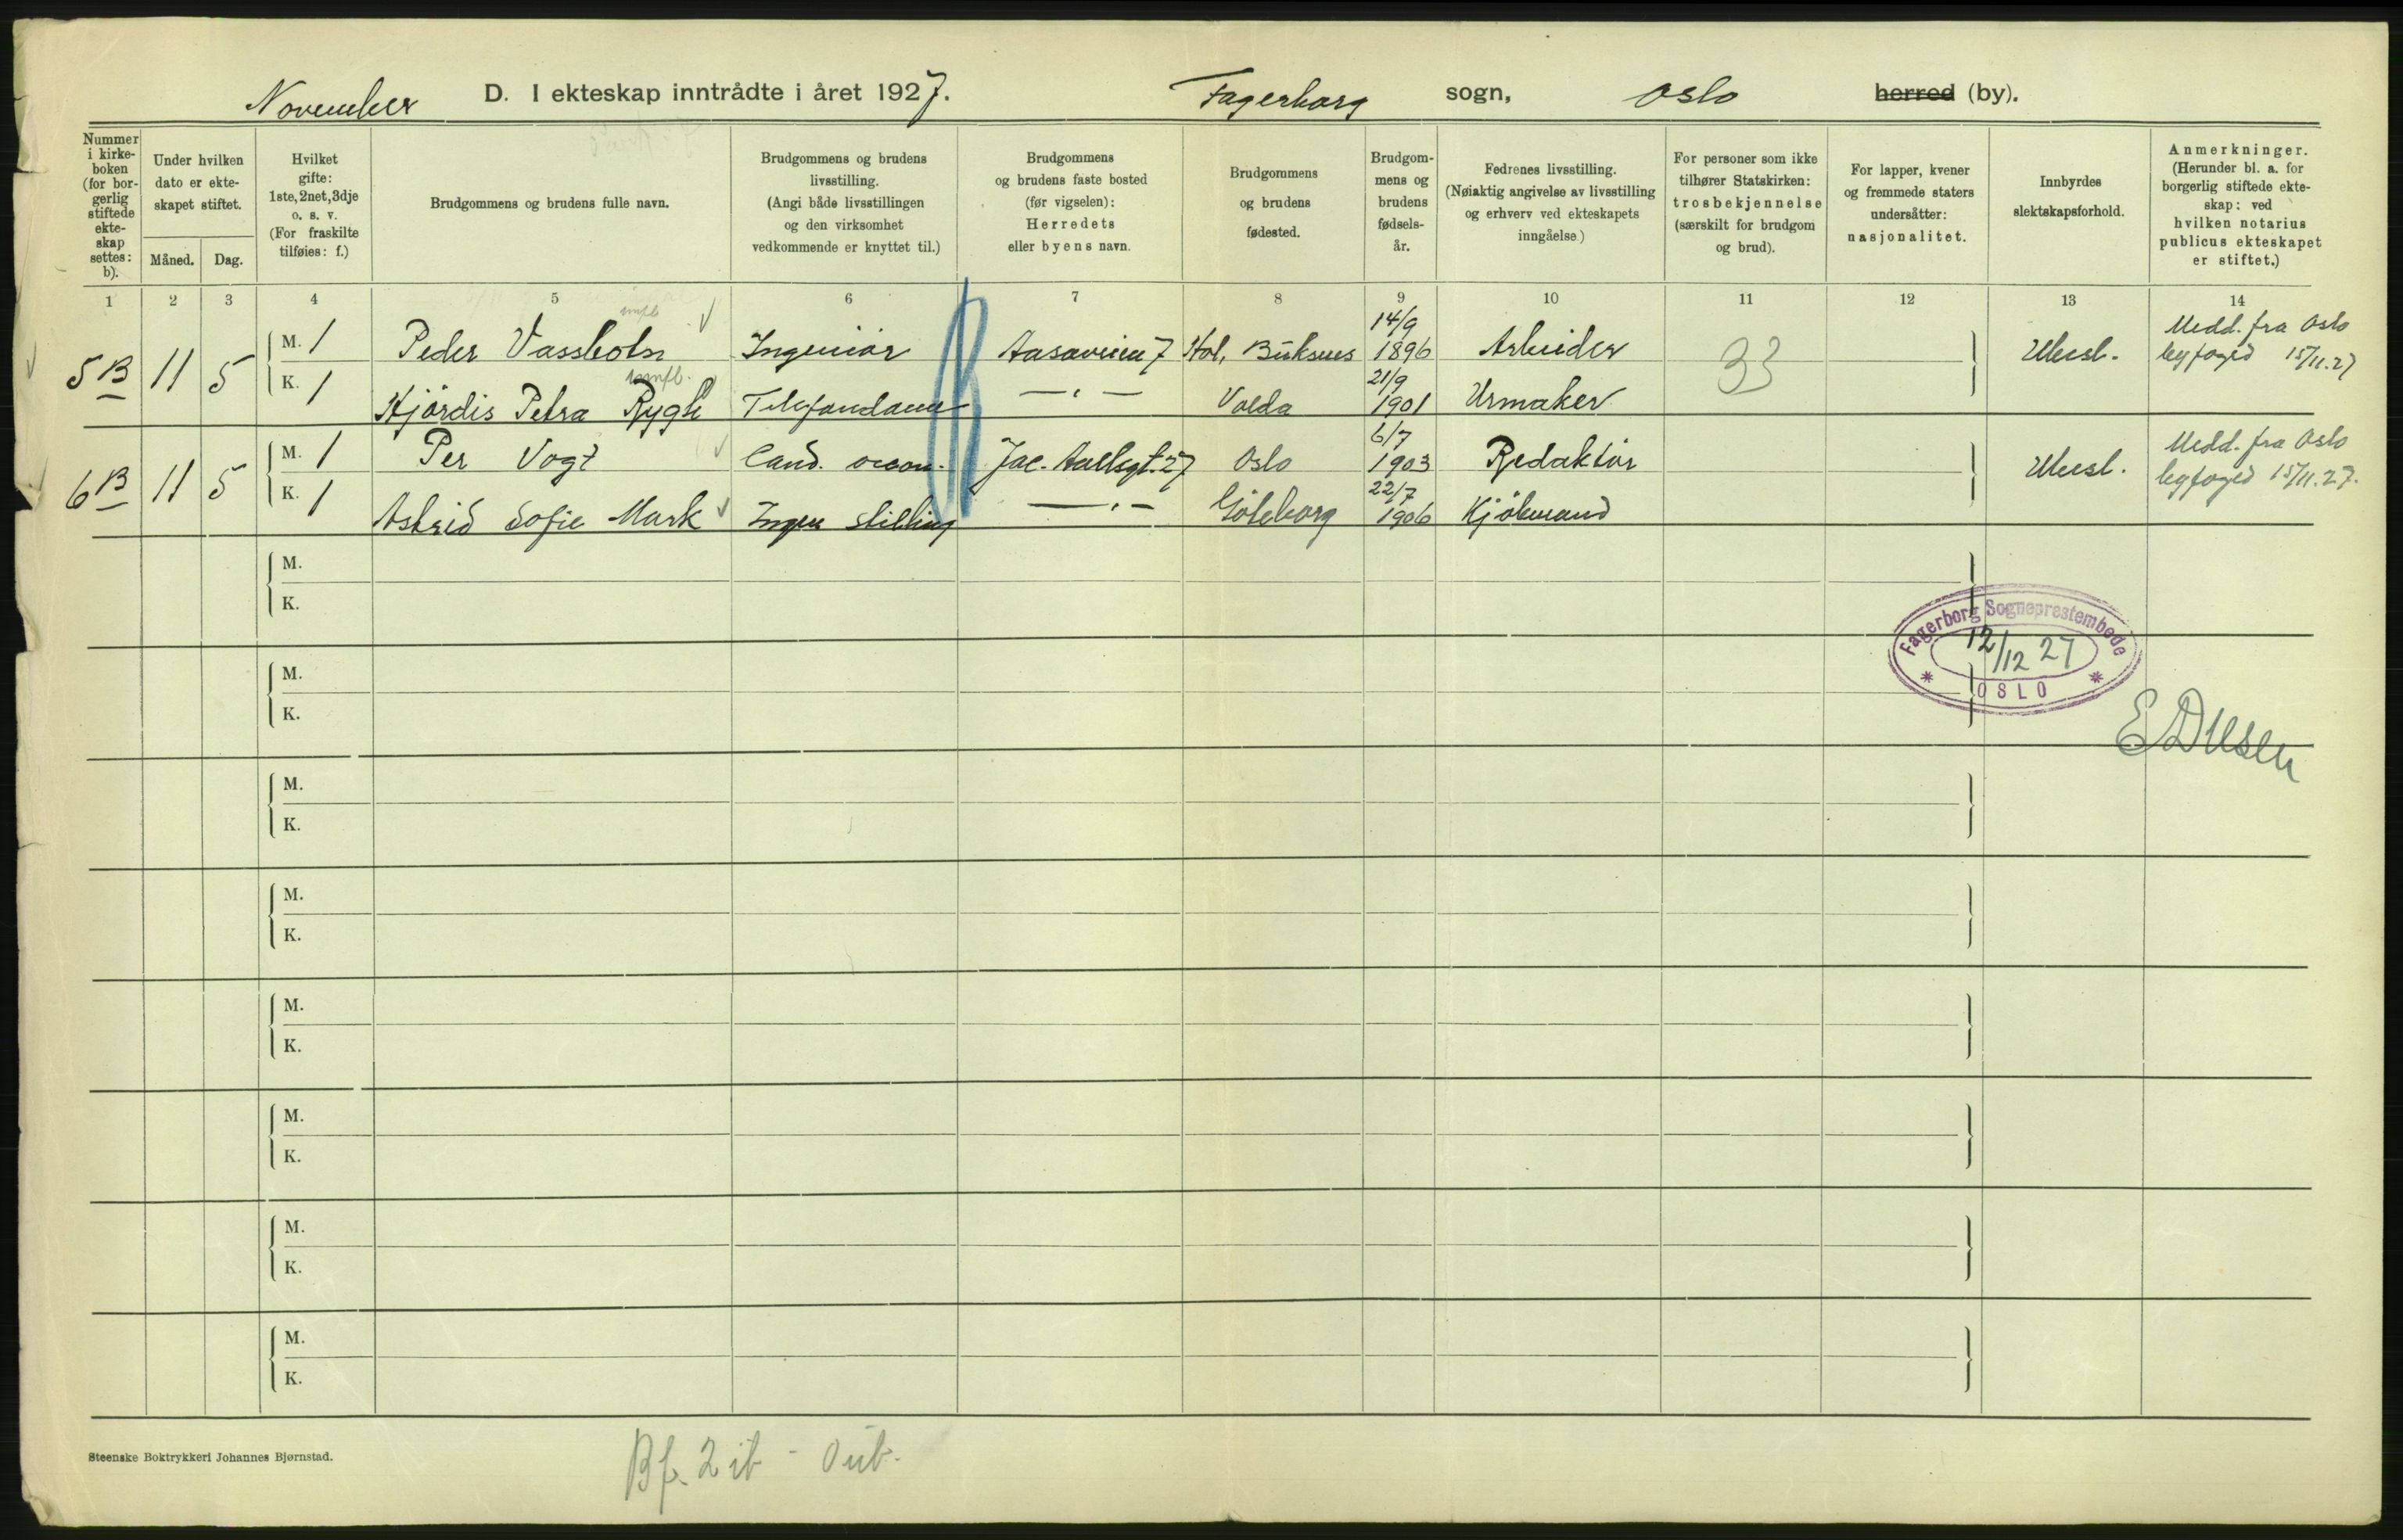 November D. I ekteskap inntrådte i året 1927. Fagerborg sogn, Oslo herred (by).
Nummer i kirke-boken (for bor-gerlig stiftede ekte-skap settes: b).
Under hvilken dato er ekte-skapet stiftet.
Måned. Dag.
Hvilket gifte: 1ste, 2net, 3dje o. s. v. (For fraskilte tilføies: f.)
Brudgommens og brudens fulle navn.
Brudgommens og brudens livsstilling. (Angi både livsstillingen og den virksomhet vedkommende er knyttet til.)
Brudgommens og brudens faste bosted (før vigselen): Herredets eller byens navn.
Brudgommens og brudens fødested.
Brudgom-mens og brudens fødsels-år.
Fedrenes livsstilling. (Nøiaktig angivelse av livsstilling og erhverv ved ekteskapets inngåelse)
For personer som ikke tilhører Statskirken: trosbekjennelse (særskilt for brudgom og brud).
For lapper, kvener og fremmede staters undersåtter: nasjonalitet.
Innbyrdes slektskapsforhold.
Anmerkninger. (Herunder bl. a. for borgerlig stiftede ekte-skap: ved hvilken notarius publicus ekteskapet er stiftet.)
1 2 3 4 5 6 7 8 9 10 11 12 13 14
5 B 11 5 M. 1 Peder Vassbotn Ingeniør Aasaveien 7 Hol, Buksnes 14/9 1896 Arbeider 33 Ubesl. Medd. fra Oslo byfoged 15/11.27
K. 1 Hjördis Petra Rygh Telefondame — " — Volda 21/9 1901 Urmaker
6 B 11 5 M. 1 Per Vogt Cand. oecon. Jac. Aallsgt. 27 Oslo 6/7 1903 Redaktør Ubesl. Medd. fra Oslo byfoged 15/11.27.
K. 1 Astrid Sofie Mark Ingen stilling — " — Göteborg 22/7 1906 Kjöbmand
M.
K.
Fagerborg Sogneprestembede
12/12 27
* OSLO *
M.
K.
M.
K.
M.
K.
M.
K.
M.
K.
M.
K.
M.
K.
Steenske Boktrykkeri Johannes Bjørnstad.
Bf. 2 ib - 0 ub.